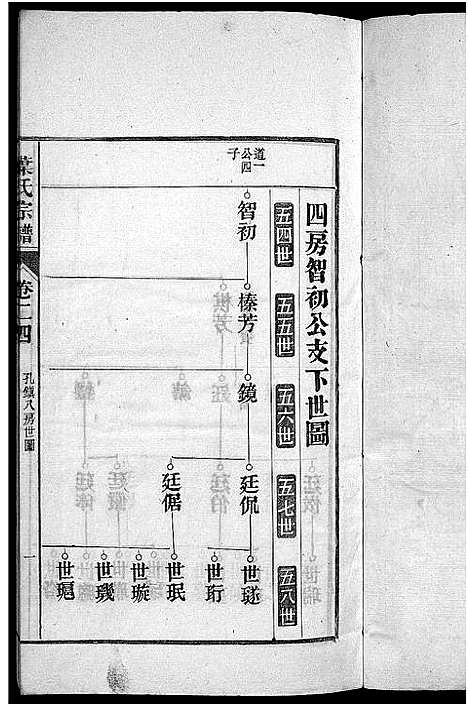 四房智初公支下世圖
五四世
五五世
五六世
五七世
五八世
道一公四子
智初
榛芳
鏡
廷侃
廷倨
世璲
世珩
世珉
世璇
世璣
世琨
葉氏宗譜
卷二四
孔鎮八房世圖
一